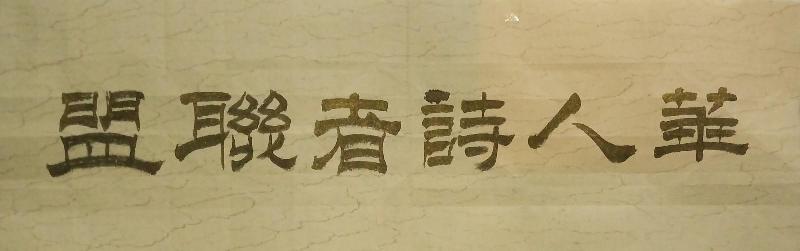 華人詩者聯盟